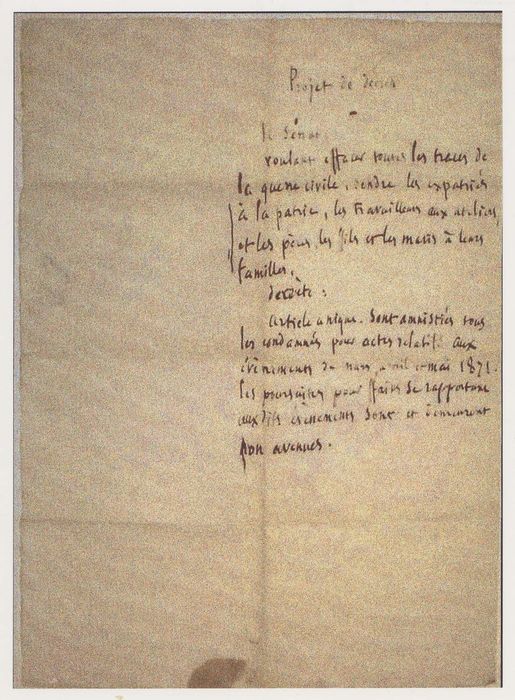 Projet de décret
le Sénat
voulant effacer toutes les traces de
la guerre civile, rendre les expatriés
à la patrie, les travailleurs aux ateliers,
et les pères, les fils et les maris à leurs
familles,
décrète :
article unique. Sont amnistiés tous
les condamnés pour actes relatifs aux
évènements de mars, avril et mai 1871.
les poursuites pour faits se rapportant
aux dits évènements sont et demeurent
non avenues.